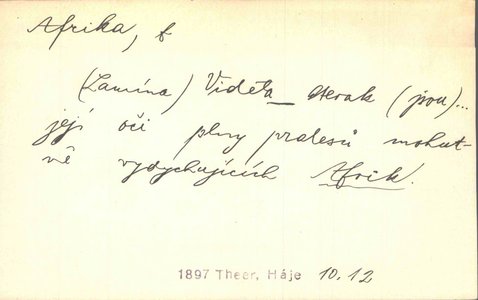 Afrika, f
(Lamína) Viděta_ (jsou)...
její oči plny pralesů mohut-
ně vydychujících Afrik.
1897 Theer, Háje 10.12